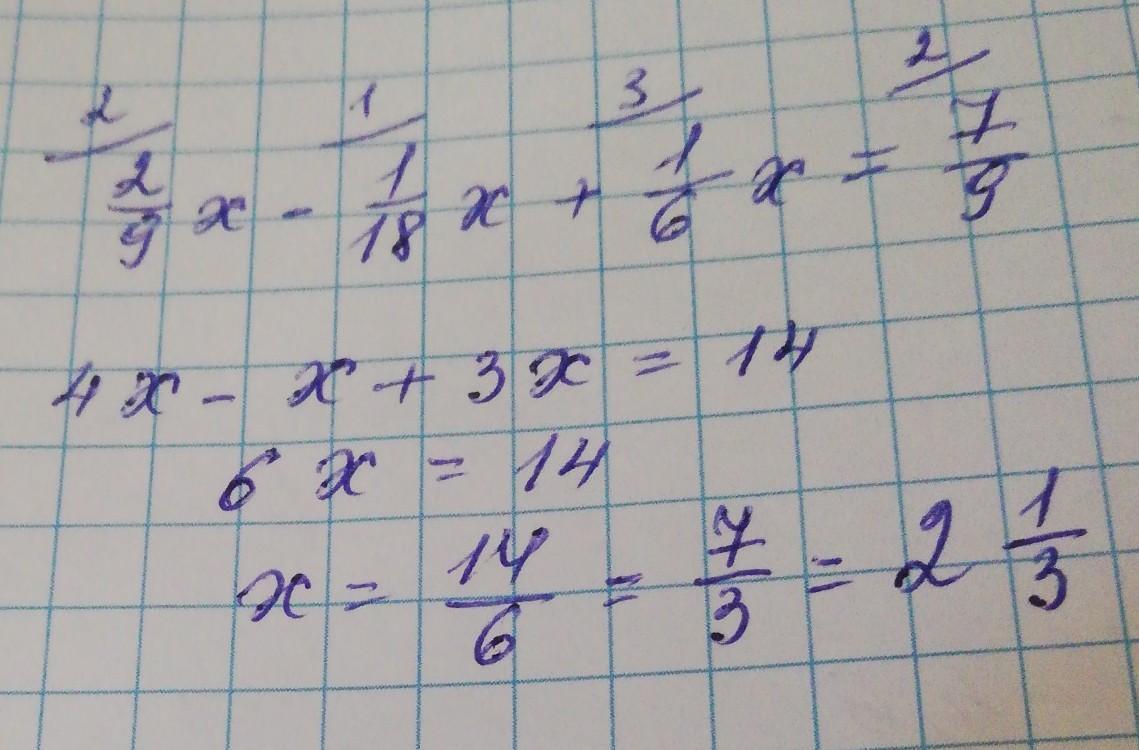 2 1 3 2
2/9 x - 1/18 x + 1/6 x = 7/9
4x - x + 3x = 14
6x = 14
x = 14/6 = 7/3 = 2 1/3